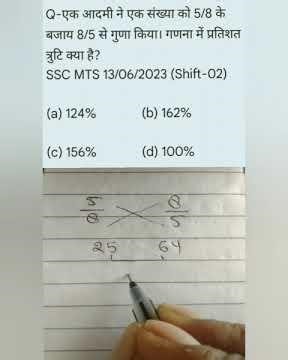 Q-एक आदमी ने एक संख्या को 5/8 के
बजाय 8/5 से गुणा किया। गणना में प्रतिशत
त्रुटि क्या है?
SSC MTS 13/06/2023 (Shift-02)
(a) 124% (b) 162%
(c) 156% (d) 100%
5 8
8 5
25 64